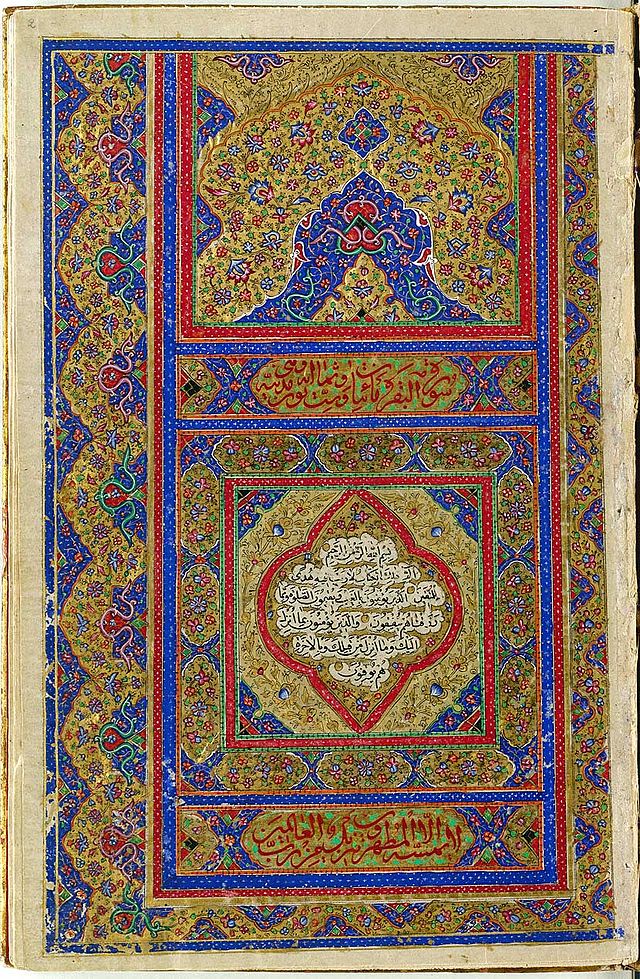 2
سورة البقرة مائتان وست وثمانون آية مدنية
بسم الله الرحمن الرحيم
الم ذلك الكتاب لا ريب فيه هدى
للمتقين الذين يؤمنون بالغيب ويقيمون الصلوة ومما
رزقناهم ينفقون والذين يؤمنون بما انزل
اليك وما انزل من قبلك وبالاخرة
هم يوقنون
لا يمسه الا المطهرون تنزيل من رب العالمين